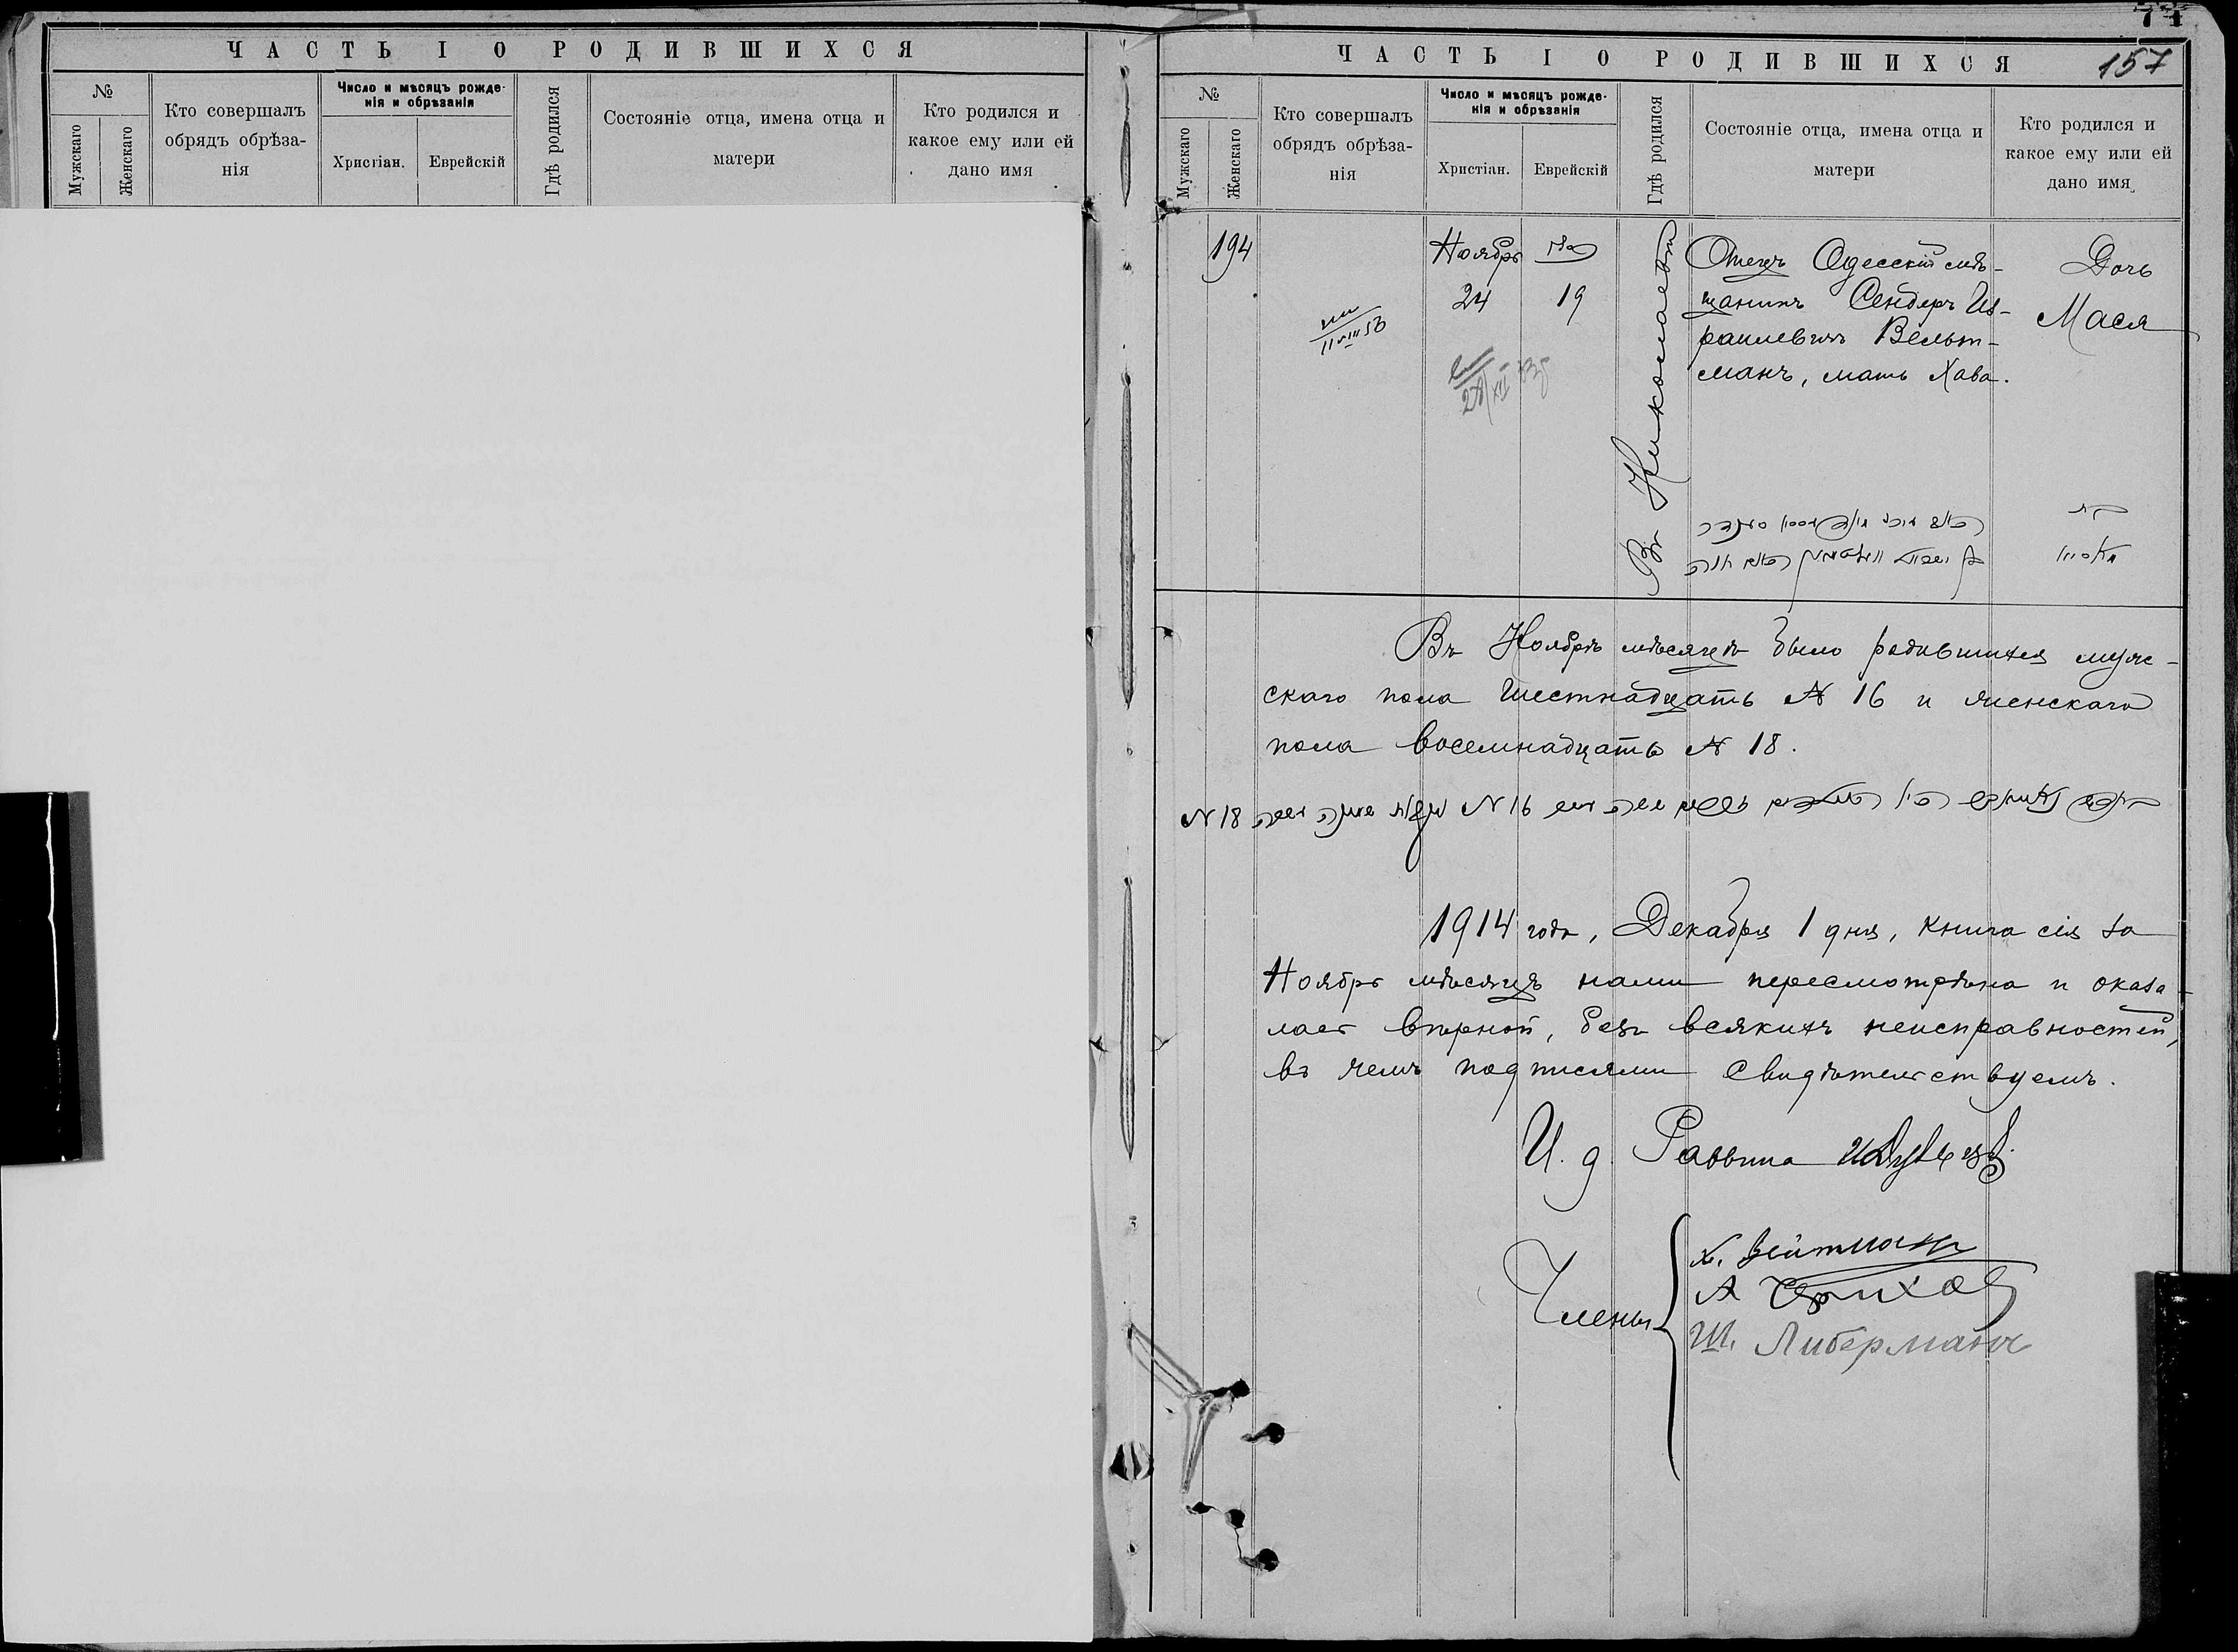 ЧАСТЬ I О РОДИВШИХСЯ
№
Мужскаго
Женскаго
Кто совершалъ
обрядъ обрѣза-
нія
Число и мѣсяцъ рожде-
нія и обрѣзанія
Христіан.
Еврейскій
Гдѣ родился
Состояніе отца, имена отца и
матери
Кто родился и
какое ему или ей
дано имя
157
ЧАСТЬ I О РОДИВШИХСЯ
№
Мужскаго
Женскаго
Кто совершалъ
обрядъ обрѣза-
нія
Число и мѣсяцъ рожде-
нія и обрѣзанія
Христіан.
Еврейскій
Гдѣ родился
Состояніе отца, имена отца и
матери
Кто родился и
какое ему или ей
дано имя
194
Ноябрь
24
19
Въ Николаевѣ
Отецъ Одесскій мѣ-
щанинъ Сендеръ Из-
раилевичъ Вельт-
манъ, мать Хава.
Дочь
Мася
Въ Ноябрѣ мѣсяцѣ было родившихся муж-
скаго пола шестнадцать № 16 и женскаго
пола восемнадцать № 18.
N 16
N 18
1914 года, Декабря 1 дня, книга сія за
Ноябрь мѣсяцъ нами пересмотрѣна и оказа-
лась вѣрной, безъ всякихъ неисправностей,
въ чемъ подписями свидѣтельствуемъ.
И. д. Раввина
Члены
Х. Вейтманъ
А
Ш. Либерманъ